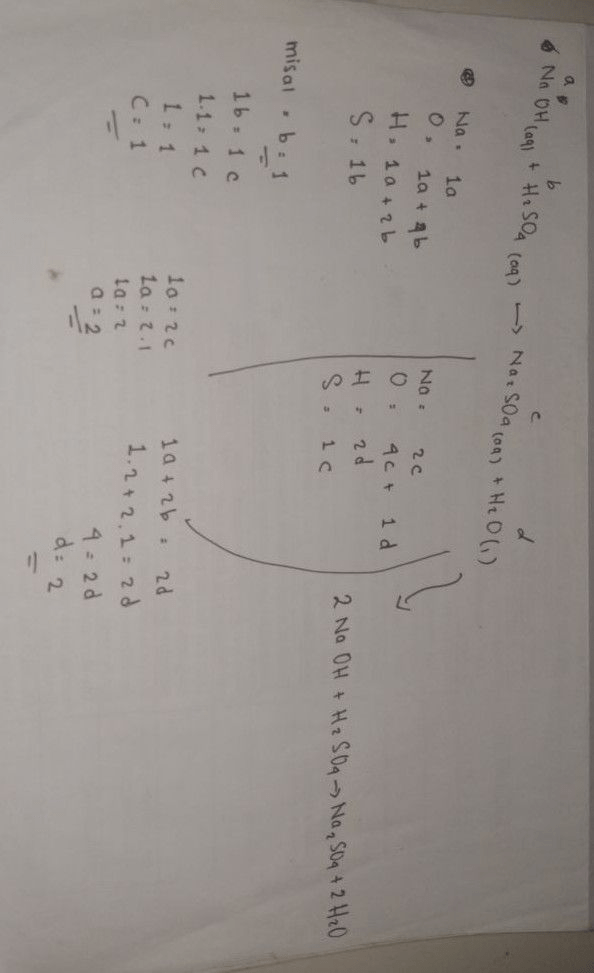 a b c d
NaOH(aq) + H2SO4(aq) → Na2SO4(aq) + H2O(l)
Na = 1a
O = 1a + 4b
H = 1a + 2b
S = 1b
Na = 2c
O = 4c + 1d
H = 2d
S = 1c
misal = b = 1
1b = 1c
1.1 = 1c
1 = 1
C = 1
1a = 2c
1a = 2.1
1a = 2
a = 2
1a + 2b = 2d
1.2 + 2.1 = 2d
4 = 2d
d = 2
2 NaOH + H2SO4 → Na2SO4 + 2H2O